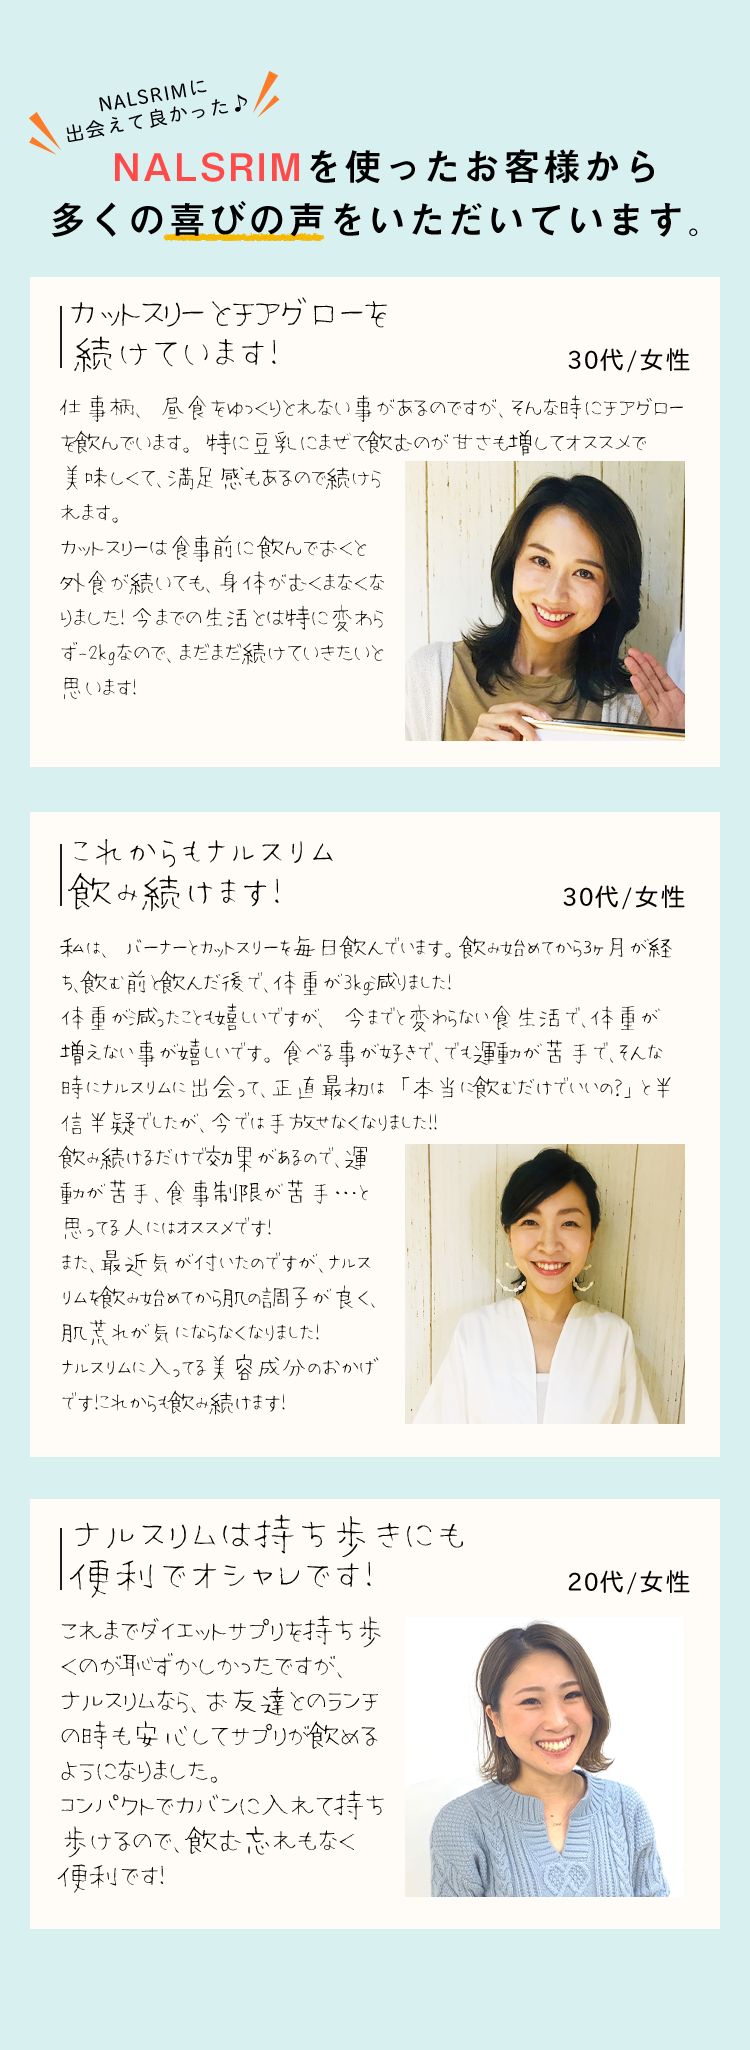 NALSRIMに
出会えて良かった♪
NALSRIMを使ったお客様から
多くの喜びの声をいただいています。
カットスリーとチアグローを
続けています!
30代/女性
仕事柄、昼食をゆっくりとれない事があるのですが、そんな時にチアグロー
を飲んでいます。特に豆乳にまぜて飲むのが甘さも増してオススメで
美味しくて、満足感もあるので続けら
れます。
カットスリーは食事前に飲んでおくと
外食が続いても、身体がむくまなくな
りました!今までの生活とは特に変わら
ず-2kgなので、まだまだ続けていきたいと
思います!
これからもナルスリム
飲み続けます!
30代/女性
私は、バーナーとカットスリーを毎日飲んでいます。飲み始めてから3ヶ月が経
ち、飲む前と飲んだ後で、体重が3kg減りました!
体重が減ったことも嬉しいですが、今までと変わらない食生活で、体重が
増えない事が嬉しいです。食べる事が好きで、でも運動が苦手で、そんな
時にナルスリムに出会って、正直最初は「本当に飲むだけでいいの?」と半
信半疑でしたが、今では手放せなくなりました!!
飲み続けるだけで効果があるので、運
動が苦手、食事制限が苦手…と
思ってる人にはオススメです!
また、最近気が付いたのですが、ナルス
リムを飲み始めてから肌の調子が良く、
肌荒れが気にならなくなりました!
ナルスリムに入ってる美容成分のおかげ
です!これからも飲み続けます!
ナルスリムは持ち歩きにも
便利でオシャレです!
20代/女性
これまでダイエットサプリを持ち歩
くのが恥ずかしかったですが、
ナルスリムなら、お友達とのランチ
の時も安心してサプリが飲める
ようになりました。
コンパクトでカバンに入れて持ち
歩けるので、飲む忘れもなく
便利です!